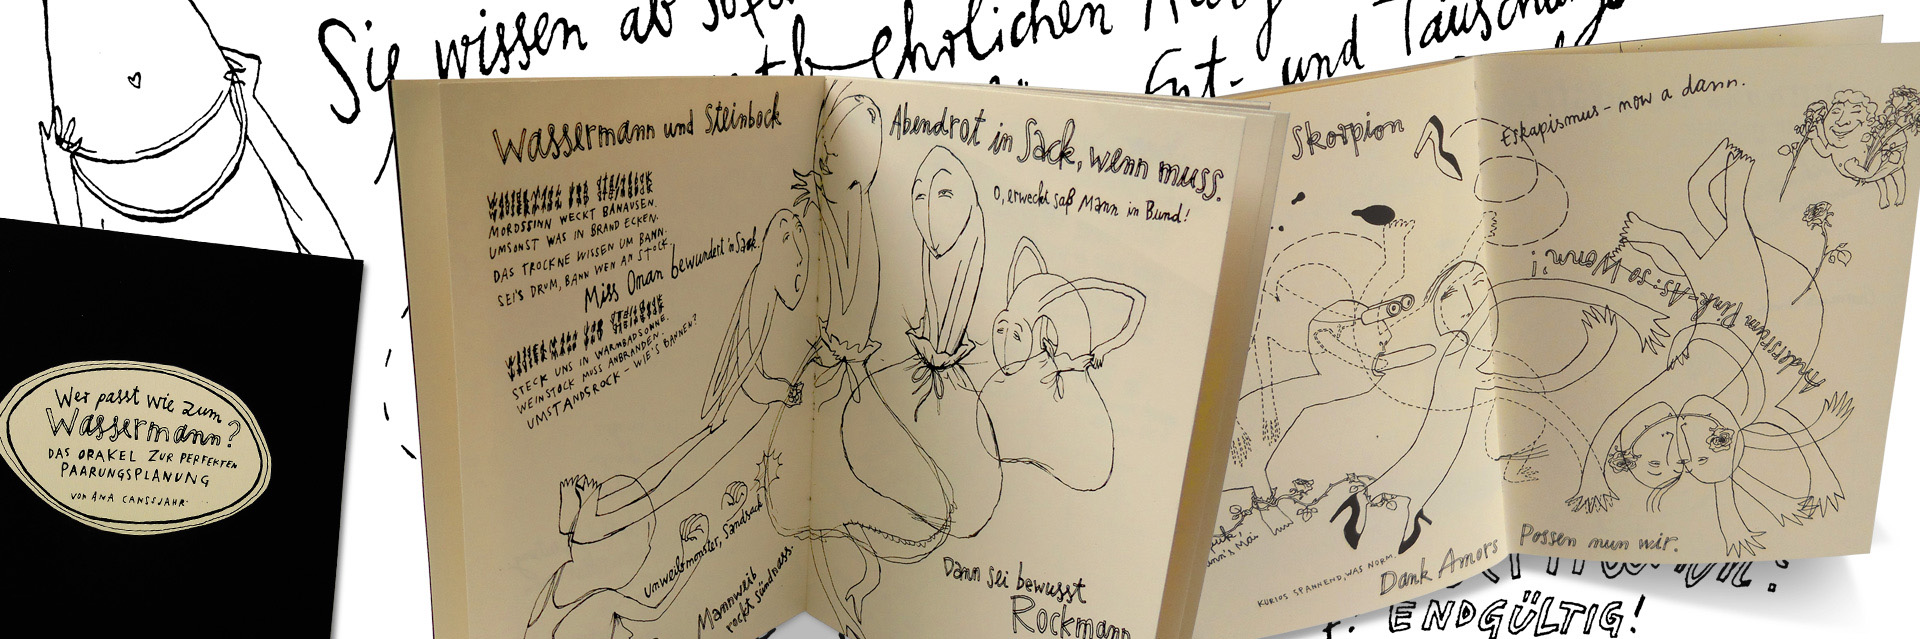 Sie wissen ab
ehrlichen
Ent- und Täuschungs
Wer passt wie zum
Wassermann?
DAS ORAKEL ZUR PERFEKTEN
PAARUNGSPLANUNG
VON ANA CANSSJAHR
Wassermann und Steinbock
WASSERMANN UND STEINBOCK
MORDSSINN WECKT BANAUSEN.
UMSONST WAS IN BRAND ECKEN.
DAS TROCKNE WISSEN UM BANN.
SEI'S DRUM, BANN WEN AN STOCK.
Miss Oman bewundert'n Sack.
WASSERMANN UND STEINBOCK
STECK UNS IN WARMBADSONNE.
WEINSTOCK MUSS ANBRANDEN.
UMSTANDSROCK – WIE'S BANNEN?
Unweibmonster, Sandsack
Mannweib
rockt sündnass.
Abendrot in Sack, wenn muss.
O, erweckt saß Mann in Bund!
Dann sei bewusst
Rockmann
Skorpion
KURIOS SPANNEND, WAS NORM.
Dank Amors
Eskapismus – now a dann.
Andersrum Pink-As: so Wonn'!
Possen nun wir.
ENDGÜLTIG!